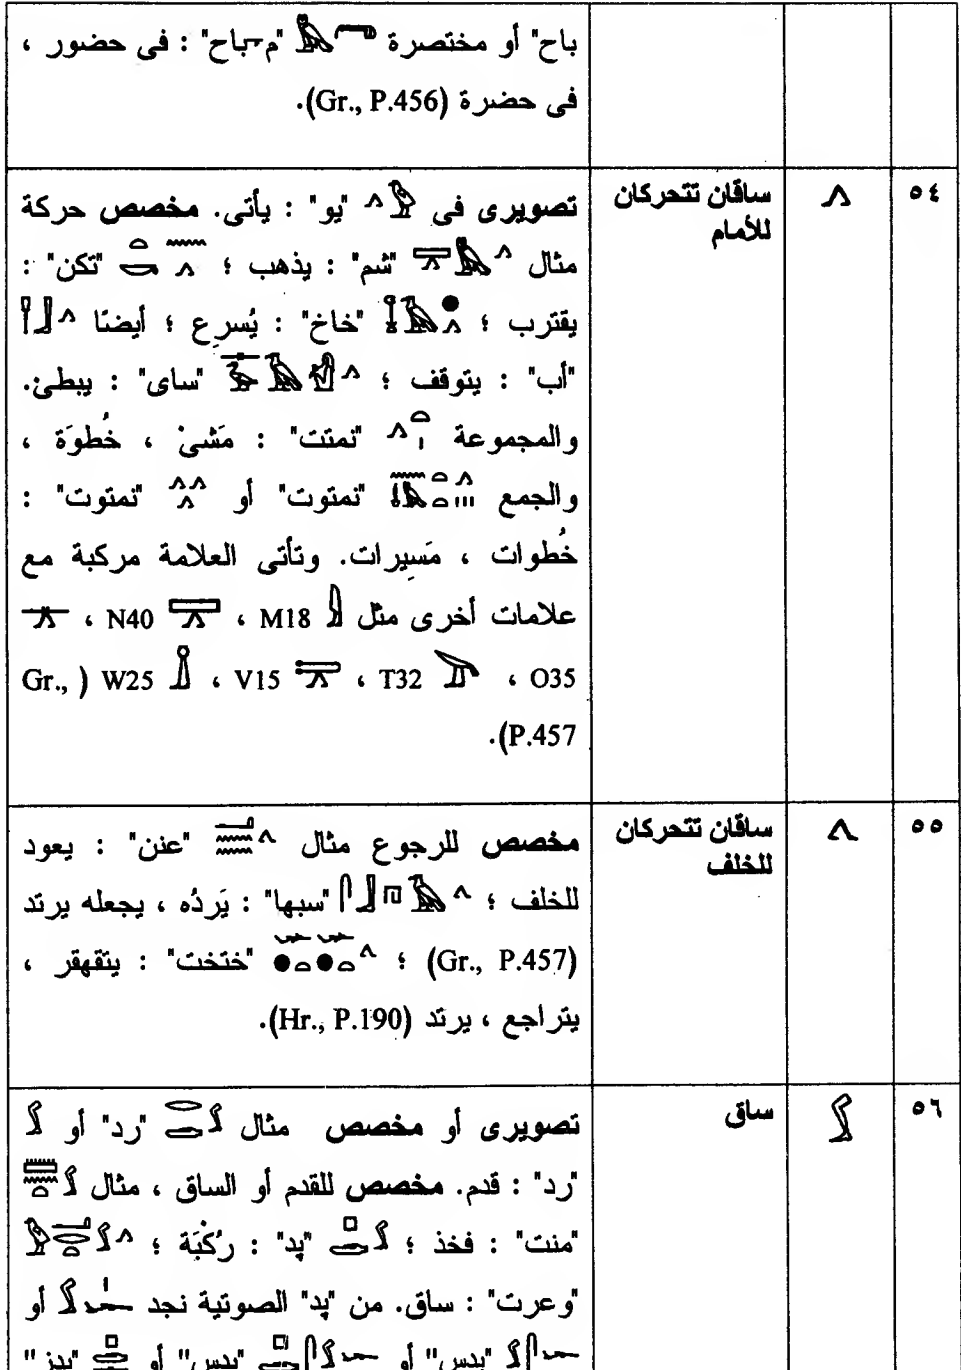 باح" أو مختصرة "م-باح" : فى حضور ،
فى حضرة (Gr., P.456).
٥٤
ساقان تتحركان
للأمام
تصويرى فى "يو" : يأتى. مخصص حركة
مثال "شم" : يذهب ؛ "تكن" :
يقترب ؛ "خاخ" : يُسرِع ؛ أيضنًا
"أب" : يتوقف ؛ "ساى" : يبطئ.
والمجموعة "نمتت" : مَشىْ ، خُطوَة ،
والجمع "نمتوت" أو "نمتوت" :
خُطوات ، مَسِيرات. وتأتى العلامة مركبة مع
علامات أخرى مثل M18 ، N40 ،
O35 ، T32 ، V15 ، W25 (Gr.,
P.457).
٥٥
ساقان تتحركان
للخلف
مخصص للرجوع مثال "عنن" : يعود
للخلف ؛ "سبها" : يَردُه ، يجعله يرتد
(Gr., P.457) ؛ "ختخت" : يتقهقر ،
يتراجع ، يرتد (Hr., P.190).
٥٦
ساق
تصويرى أو مخصص مثال "رد" أو
"رد" : قدم. مخصص للقدم أو الساق ، مثال
"منت" : فخذ ؛ "پد" : رُكْبَة ؛
"وعرت" : ساق. من "پد" الصوتية نجد أو
"پدس" أو "پدس" أو "پدز"